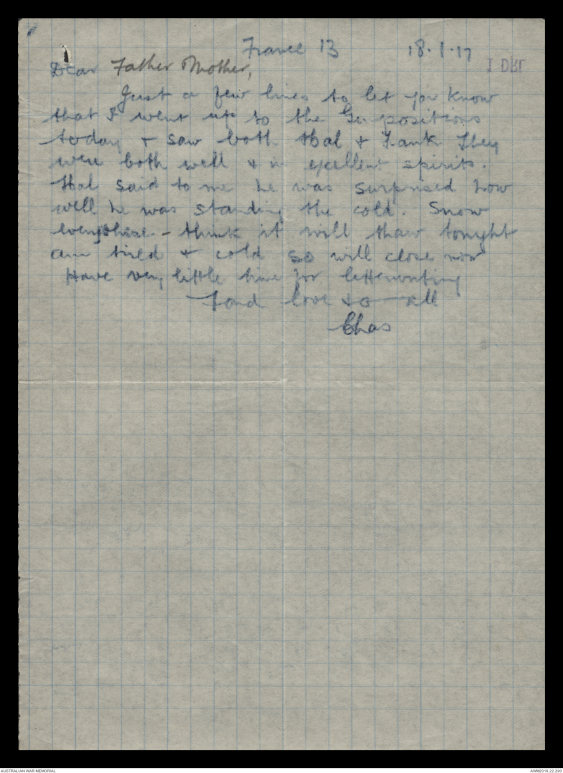 France 13 18.1.17
1 DRL
Dear Father Mother,
Just a few lines to let you know
that I went up to the Gun positions
today & saw both Hal & Frank They
were both well & in excellent spirits.
Hal said to me he was surprised how
well he was standing the cold. Snow
everywhere - think it will thaw tonight
am tired & cold so will close now
Have very little time for letterwriting
Fond love to all
Chas
AUSTRALIAN WAR MEMORIAL